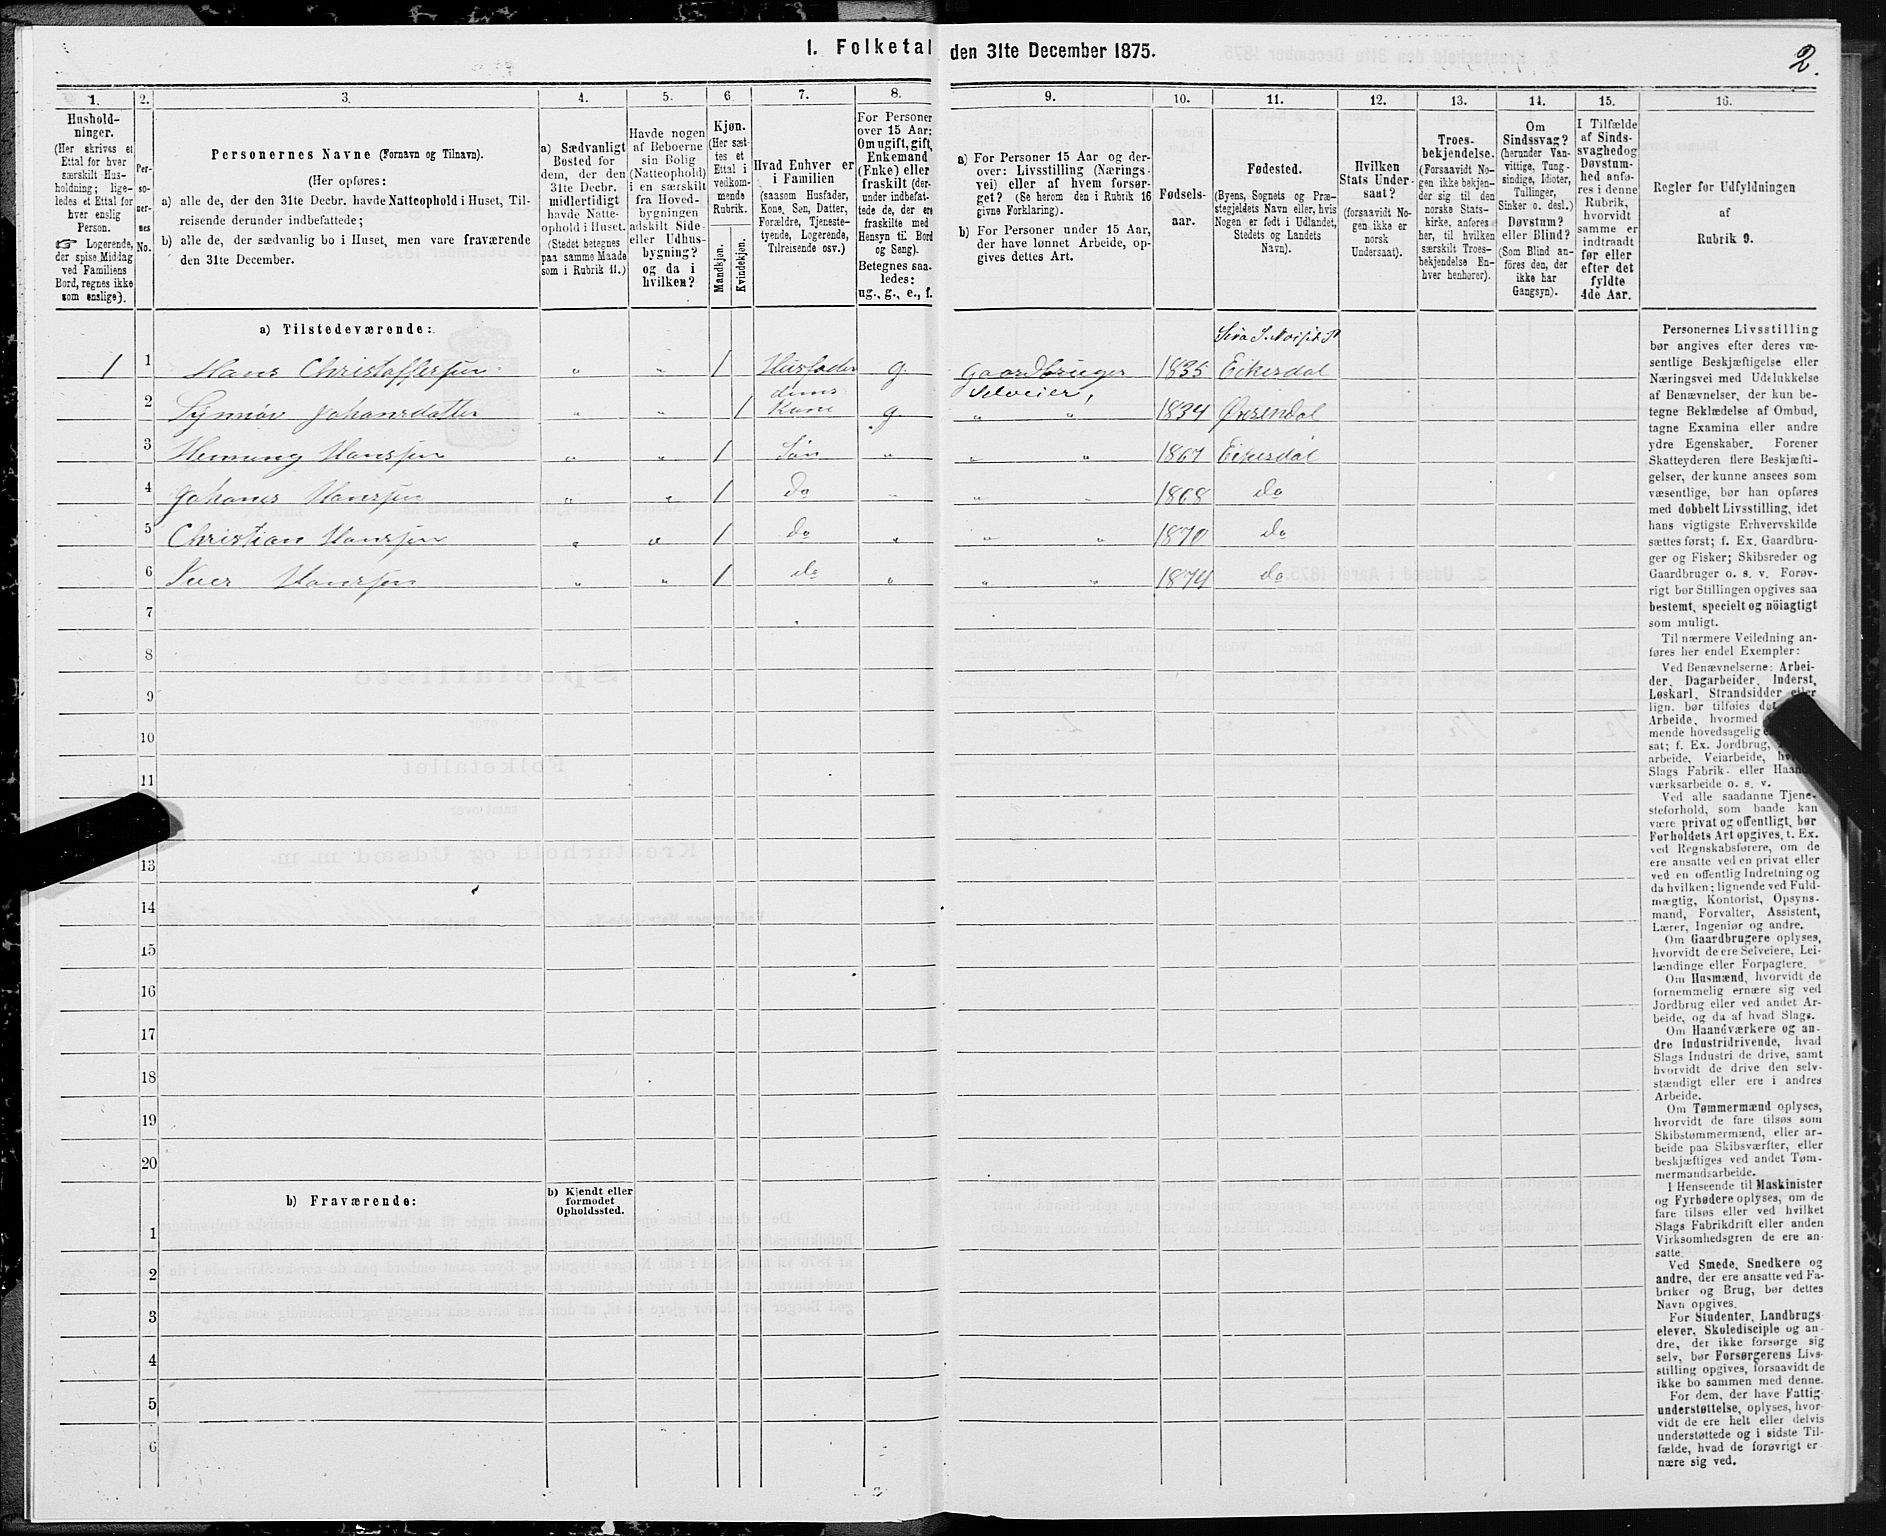 1. Folketal den 31te December 1875.
2.
1.
2.
3.
4.
5.
6
7.
8.
9.
10.
11.
12.
13.
14.
15.
16.
Hushold-
ninger.
(Her skrives et
Ettal for hver
særskilt Hus-
holdning; lige-
ledes et Ettal for
hver enslig
Person.
☞ Logerende,
der spise Middag
ved Familiens
Bord, regnes ikke
som enslige).
Per-
so-
ner-
nes
No.
Personernes Navne (Fornavn og Tilnavn).
(Her opføres:
a) alle de, der den 31te Decbr. havde Natteophold i Huset, Til-
reisende derunder indbefattede;
b) alle de, der sædvanlig bo i Huset, men vare fraværende
den 31te December.
a) Sædvanligt
Bosted for
dem, der den
31te Decbr.
midlertidigt
havde Natte-
ophold i Huset.
(Stedet betegnes
paa samme Maade
som i Rubrik 11.)
Havde nogen
af Beboerne
sin Bolig
(Natteophold)
i en særskilt
fra Hoved-
bygningen
adskilt Side-
eller Udhus-
bygning?
og da i
hvilken?
Kjøn.
(Her sæt-
tes et
Ettal i
vedkom-
mende
Rubrik.
Mandkjøn.
Kvindekjøn.
Hvad Enhver er
i Familien
(saasom Husfader,
Kone, Søn, Datter,
Forældre, Tjeneste-
tyende, Logerende,
Tilreisende osv.)
For Personer
over 15 Aar:
Om ugift, gift,
Enkemand
(Enke) eller
fraskilt (der-
under indbefat-
tede de, der ere
fraskilte med
Hensyn til Bord
og Seng).
Betegnes saa-
ledes:
ug., g., e., f.
a) For Personer 15 Aar og der-
over: Livsstilling (Nærings-
vei) eller af hvem forsør-
get? (Se herom den i Rubrik 16
givne Forklaring).
b) For Personer under 15 Aar,
der have lønnet Arbeide, op-
gives dettes Art.
Fødsels-
aar.
Fødested.
(Byens, Sognets og Præ-
stegjeldets Navn eller, hvis
Nogen er født i Udlandet,
Stedets og Landets
Navn).
Hvilken
Stats Under-
saat?
(forsaavidt No-
gen ikke er
norsk
Undersaat).
Troes-
bekjendelse.
(Forsaavidt No-
gen ikke bekjen-
der sig til den
norske Stats-
kirke, anføres
her, til hvilken
særskilt Troes-
bekjendelse En-
hver henhører).
Om
Sindssvag?
(herunder Van-
vittige, Tung-
sindige, Idioter,
Tullinger,
Sinker o. desl.)
Døvstum?
eller Blind?
(Som Blind an-
føres den, der
ikke har
Gangsyn).
I Tilfælde
af Sinds-
svaghed og
Døvstum-
hed anfø-
res i denne
Rubrik,
hvorvidt
samme er
indtraadt
før eller
efter det
fyldte
4de Aar.
Regler for Udfyldningen
af
Rubrik 9.
a) Tilstedeværende:
1 1 Hans Christoffersen „ „ 1 Husfader g. Gaardbruger 1835 Eikesdal
Selveier,
2 Synnøv Johansdatter „ „ 1 Kone g „ „ 1834 Øxendal
3 Hemming Hanssen „ „ 1 Søn „ „ „ 1867 Eikesdal
4 Johanes Hanssen „ „ 1 do „ „ 1868 do
5 Christian Hanssen „ „ 1 do „ „ „ 1870 do
6 Iver Hanssen „ „ 1 do „ „ „ 1874 do
7
8
9
10
11
13
14
15
16
17
18
19
20
b) Fraværende:
b) Kjendt eller
formodet
Opholdssted.
1
2
3
4
5
6
Personernes Livsstilling
bør angives efter deres væ-
sentlige Beskjæftigelse eller
Næringsvei med Udelukkelse
af Benævnelser, der kun be-
tegne Beklædelse af Ombud,
tagne Examina eller andre
ydre Egenskaber. Forener
Skatteyderen flere Beskjæfti-
gelser, der kunne ansees som
væsentlige, bør han opføres
med dobbelt Livsstilling, idet
hans vigtigste Erhvervskilde
sættes først; f. Ex. Gaardbru-
ger og Fisker; Skibsreder og
Gaardbruger o. s. v. Forøv-
rigt bør Stillingen opgives saa
bestemt, specielt og nöiagtigt
som muligt.
Til nærmere Veiledning an-
føres her endel Exempler:
Ved Benævnelserne: Arbei-
der, Dagarbeider, Inderst,
Løskarl, Strandsidder eller
lign. bør tilføies det
Arbeide, hvormed
mende hovedsagelig
sat; f. Ex. Jordbrug,
arbeide, Veiarbeide,
Slags Fabrik- eller
værksarbeide o. s. v.
Ved alle saadanne Tjene-
steforhold, som baade kan
være privat og offentligt, bør
Forholdets Art opgives, t. Ex.
ved Regnskabsførere, om de
ere ansatte ved en privat eller
ved en offentlig Indretning og
da hvilken; lignende ved Fuld-
mægtig, Kontorist, Opsyns-
mand, Forvalter, Assistent,
Lærer, Ingeniør og andre.
Om Gaardbrugere oplyses,
hvorvidt de ere Selveiere, Lei-
lændinge eller Forpagtere.
Om Husmænd, hvorvidt de
fornemmelig ernære sig ved
Jordbrug eller ved andet Ar-
beide, og da af hvad Slags.
Om Haandværkere og an-
dre Industridrivende, hvad
Slags Industri de drive, samt
hvorvidt de drive den selv-
stændigt eller ere i andres
Arbeide.
Om Tømmermænd oplyses,
hvorvidt de fare tilsøs som
Skibstømmermænd, eller ar-
beide paa Skibsværfter, eller
beskjæftiges ved andet Tøm-
mermandsarbeide.
I Henseende til Maskinister
og Fyrbødere oplyses, om de
fare tilsøs eller ved hvilket
Slags Fabrikdrift eller anden
Virksomhedsgren de ere an-
satte.
Ved Smede, Snedkere og
andre, der ere ansatte ved Fa-
briker og Brug, bør dettes
Navn opgives.
For Studenter, Landbrugs-
elever, Skoledisciple og an-
dre, der ikke forsørge sig
selv, bør Forsørgerens Livs-
stilling opgives, forsaavidt de
ikke bo sammen med denne.
For dem, der have Fattig-
understøttelse, oplyses, hvor-
vidt de ere helt eller delvis
understøttede og i sidste Til-
fælde, hvad de forøvrigt er-
nære sig ved.